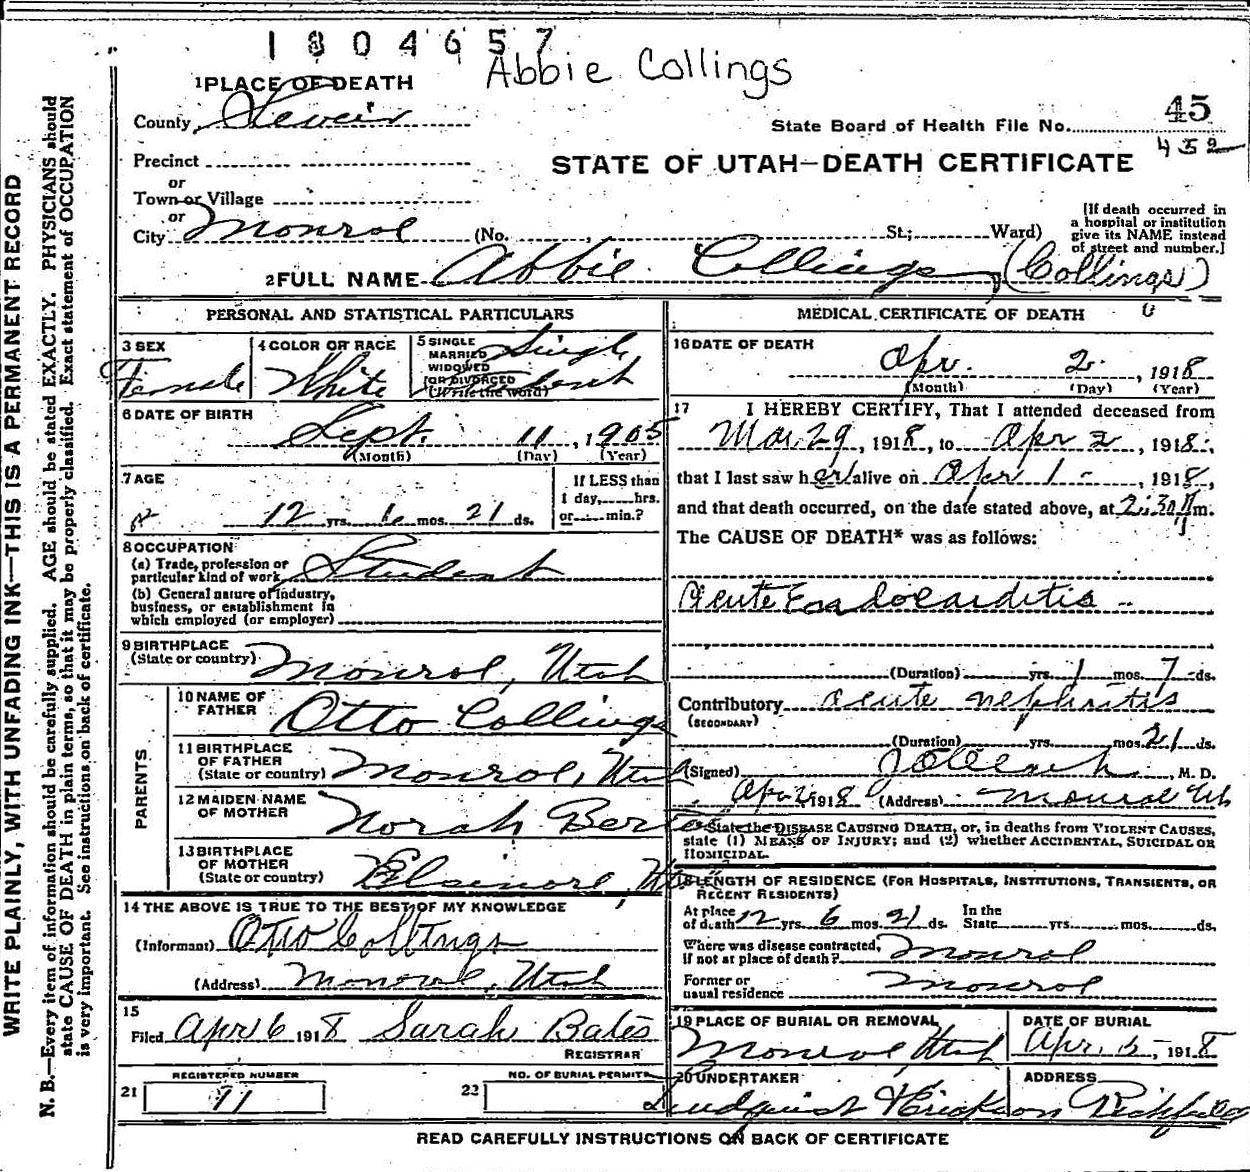 1804657
Abbie Collings
1 PLACE OF DEATH
County Sevier
State Board of Health File No. 45
452
Precinct
STATE OF UTAH—DEATH CERTIFICATE
or
Town or Village
or
City Monroe (No. St.; Ward)
[If death occurred in
a hospital or institution
give its NAME instead
of street and number.]
2 FULL NAME Abbie Collings (Collings)
PERSONAL AND STATISTICAL PARTICULARS
3 SEX
Female
4 COLOR OR RACE
White
5 SINGLE
MARRIED
WIDOWED
OR DIVORCED
(Write the word)
Single
6 DATE OF BIRTH
Sept. 11, 1905
(Month) (Day) (Year)
7 AGE
12 yrs. 6 mos. 21 ds.
If LESS than
1 day, hrs.
or min.?
8 OCCUPATION
(a) Trade, profession or
particular kind of work Student
(b) General nature of industry,
business, or establishment in
which employed (or employer)
9 BIRTHPLACE
(State or country) Monroe, Utah
PARENTS
10 NAME OF
FATHER Otto Collings
11 BIRTHPLACE
OF FATHER
(State or country) Monroe, Utah
12 MAIDEN NAME
OF MOTHER Norah
13 BIRTHPLACE
OF MOTHER
(State or country) Elsinore, Utah
14 THE ABOVE IS TRUE TO THE BEST OF MY KNOWLEDGE
(Informant) Otto Collings
(Address) Monroe, Utah
15
Filed Apr 6 1918 Sarah Bates
REGISTRAR
REGISTERED NUMBER
21 11
NO. OF BURIAL PERMIT
22
MEDICAL CERTIFICATE OF DEATH
16 DATE OF DEATH
Apr. 2, 1918
(Month) (Day) (Year)
17 I HEREBY CERTIFY, That I attended deceased from
Mar. 29, 1918, to Apr 2, 1918,
that I last saw her alive on Apr 1 -, 1918,
and that death occurred, on the date stated above, at 2:30 m.
The CAUSE OF DEATH* was as follows:
Acute Endocarditis --
(Duration) yrs. 1 mos. 7 ds.
Contributory acute nephritis
(SECONDARY)
(Duration) yrs. mos. 21 ds.
(Signed) , M. D.
Apr 2, 1918 (Address) Monroe Ut
*State the DISEASE CAUSING DEATH, or, in deaths from VIOLENT CAUSES,
state (1) MEANS OF INJURY; and (2) whether ACCIDENTAL, SUICIDAL OR
HOMICIDAL.
18 LENGTH OF RESIDENCE (FOR HOSPITALS, INSTITUTIONS, TRANSIENTS, OR
RECENT RESIDENTS)
At place
of death 12 yrs. 6 mos. 21 ds.
In the
State yrs. mos. ds.
Where was disease contracted,
if not at place of death? Monroe
Former or
usual residence Monroe
19 PLACE OF BURIAL OR REMOVAL
Monroe, Utah
DATE OF BURIAL
Apr. 5, 1918
20 UNDERTAKER
Lundquist & Erickson
ADDRESS
Richfield
READ CAREFULLY INSTRUCTIONS ON BACK OF CERTIFICATE
WRITE PLAINLY, WITH UNFADING INK—THIS IS A PERMANENT RECORD
N. B.—Every item of information should be carefully supplied. AGE should be stated EXACTLY. PHYSICIANS should
state CAUSE OF DEATH in plain terms, so that it may be properly classified. Exact statement of OCCUPATION
is very important. See instructions on back of certificate.